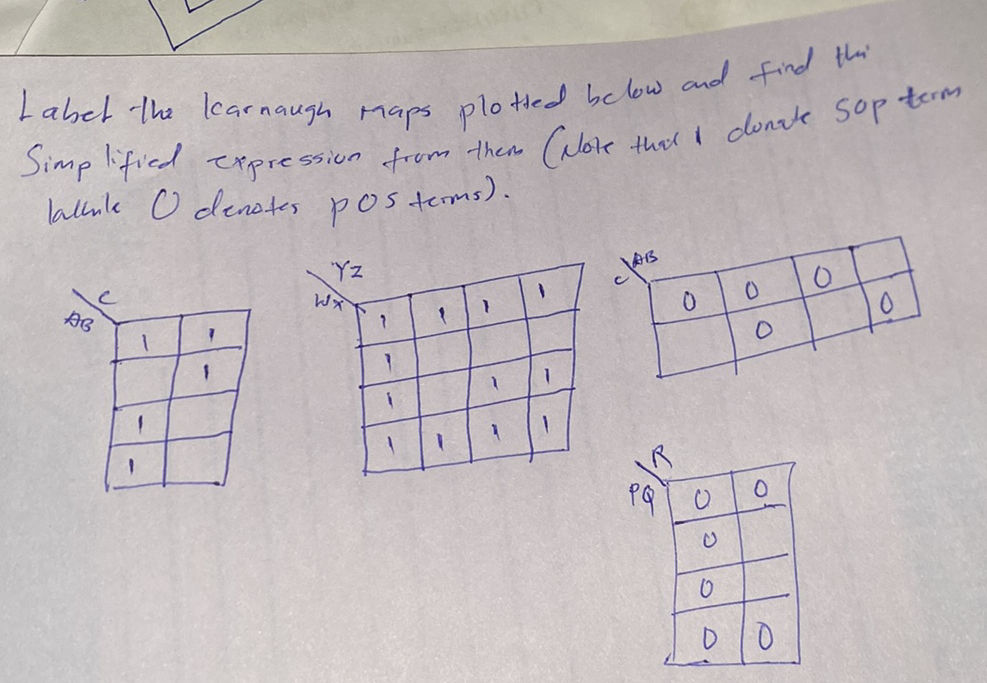 Label the Karnaugh maps plotted below and find the
Simplified expression from them (Note that 1 donate SOP term
while 0 denotes POS terms).
C
AB
1 1
1
1
1
YZ
WX
1 1 1 1
1
1 1 1
1 1 1 1
AB
C
0 0 0
0 0
R
PQ
0 0
0
0
0 0